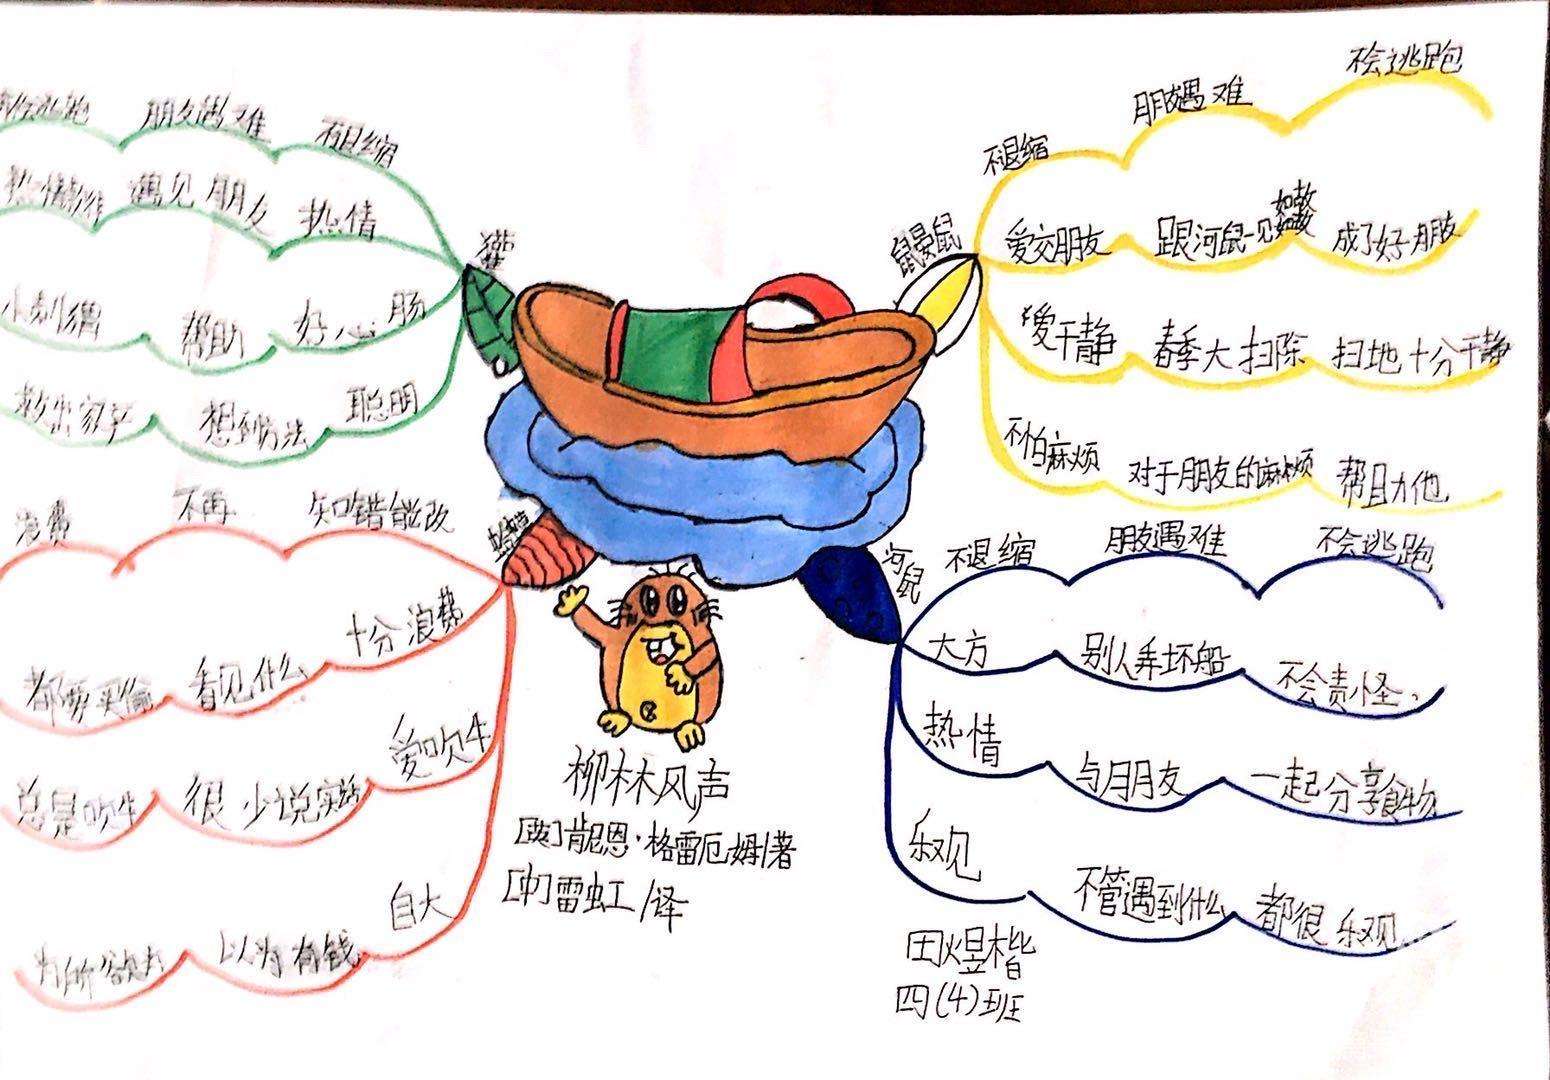 獾
不退缩
朋友遇难
不会逃跑
热情
遇见朋友
好心肠
帮助
小刺猬
聪明
想到方法
救出家产
蛤蟆
知错能改
不再
浪费
十分浪费
看见什么
都要买
爱吹牛
很少说实话
总是吹牛
自大
以为有钱
为所欲为
鼹鼠
不退缩
朋友遇难
不会逃跑
爱交朋友
跟河鼠一见如故
成了好朋友
爱干静
春季大扫除
扫地十分干静
不怕麻烦
对于朋友的麻烦
帮助他
河鼠
不退缩
朋友遇难
不会逃跑
大方
别人弄坏船
不会责怪
热情
与朋友
一起分享食物
乐观
不管遇到什么
都很乐观
柳林风声
[英]肯尼恩·格雷厄姆/著
[中]雷虹/译
田煜楷
四(4)班